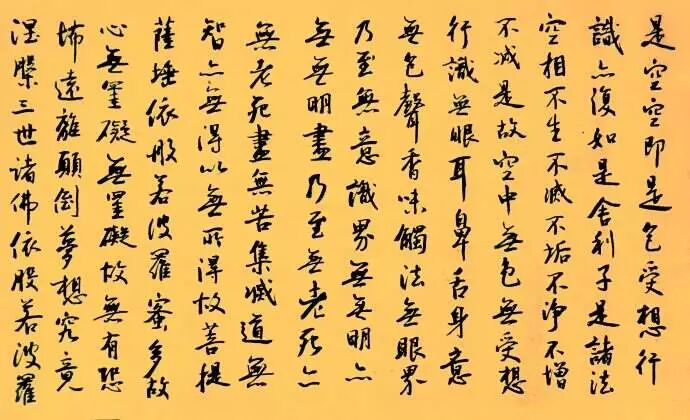 是空空即是色受想行
識亦復如是舍利子是諸法
空相不生不滅不垢不净不增
不减是故空中無色無受想
行識無眼耳鼻舌身意
無色聲香味觸法無眼界
乃至無意識界無無明亦
無無明盡乃至無老死亦
無老死盡無苦集滅道無
智亦無得以無所得故菩提
薩埵依般若波羅蜜多故
心無罣礙無罣礙故無有恐
怖遠離顛倒夢想究竟
涅槃三世諸佛依般若波羅